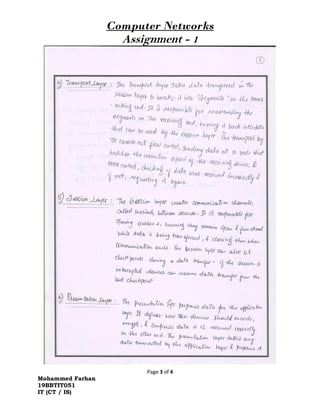 Computer Networks
Assignment - 1
4) Transport Layer : The Transport layer takes data transferred in the
session layer & breaks it into "Segments" on the trans
-mitting end. It is responsible for reassembling the
segments on the receiving end, turning it back into data
that can be used by the session layer. The transport lay
-er carries out flow control, sending data at a rate that
matches the connection speed of the receiving device, &
error control, checking if data was received incorrectly &
if not, requesting it again.
5) Session Layer : The Session layer creates communication channels,
called sessions, between devices. It is responsible for
opening sessions, ensuring they remain open & functional
while data is being transferred, & closing them when
communication ends. The session layer can also set
checkpoints during a data transfer - if the session is
interrupted, devices can resume data transfer from the
last checkpoint
6) Presentation Layer : The presentation layer prepares data for the application
layer. It defines how two devices should encode,
encrypt, & compress data it is received correctly
on the other end. The presentation layer takes any
data transmitted by the application layer & prepares it
Page 3 of 6
Mohammed Farhan
19BBTIT051
IT (CT / IS)